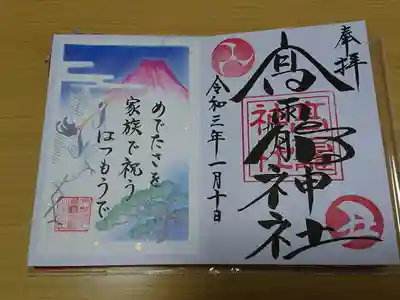 奉拝
高龗神社
令和三年一月十日
丑
めでたさを
家族で祝う
はつもうで